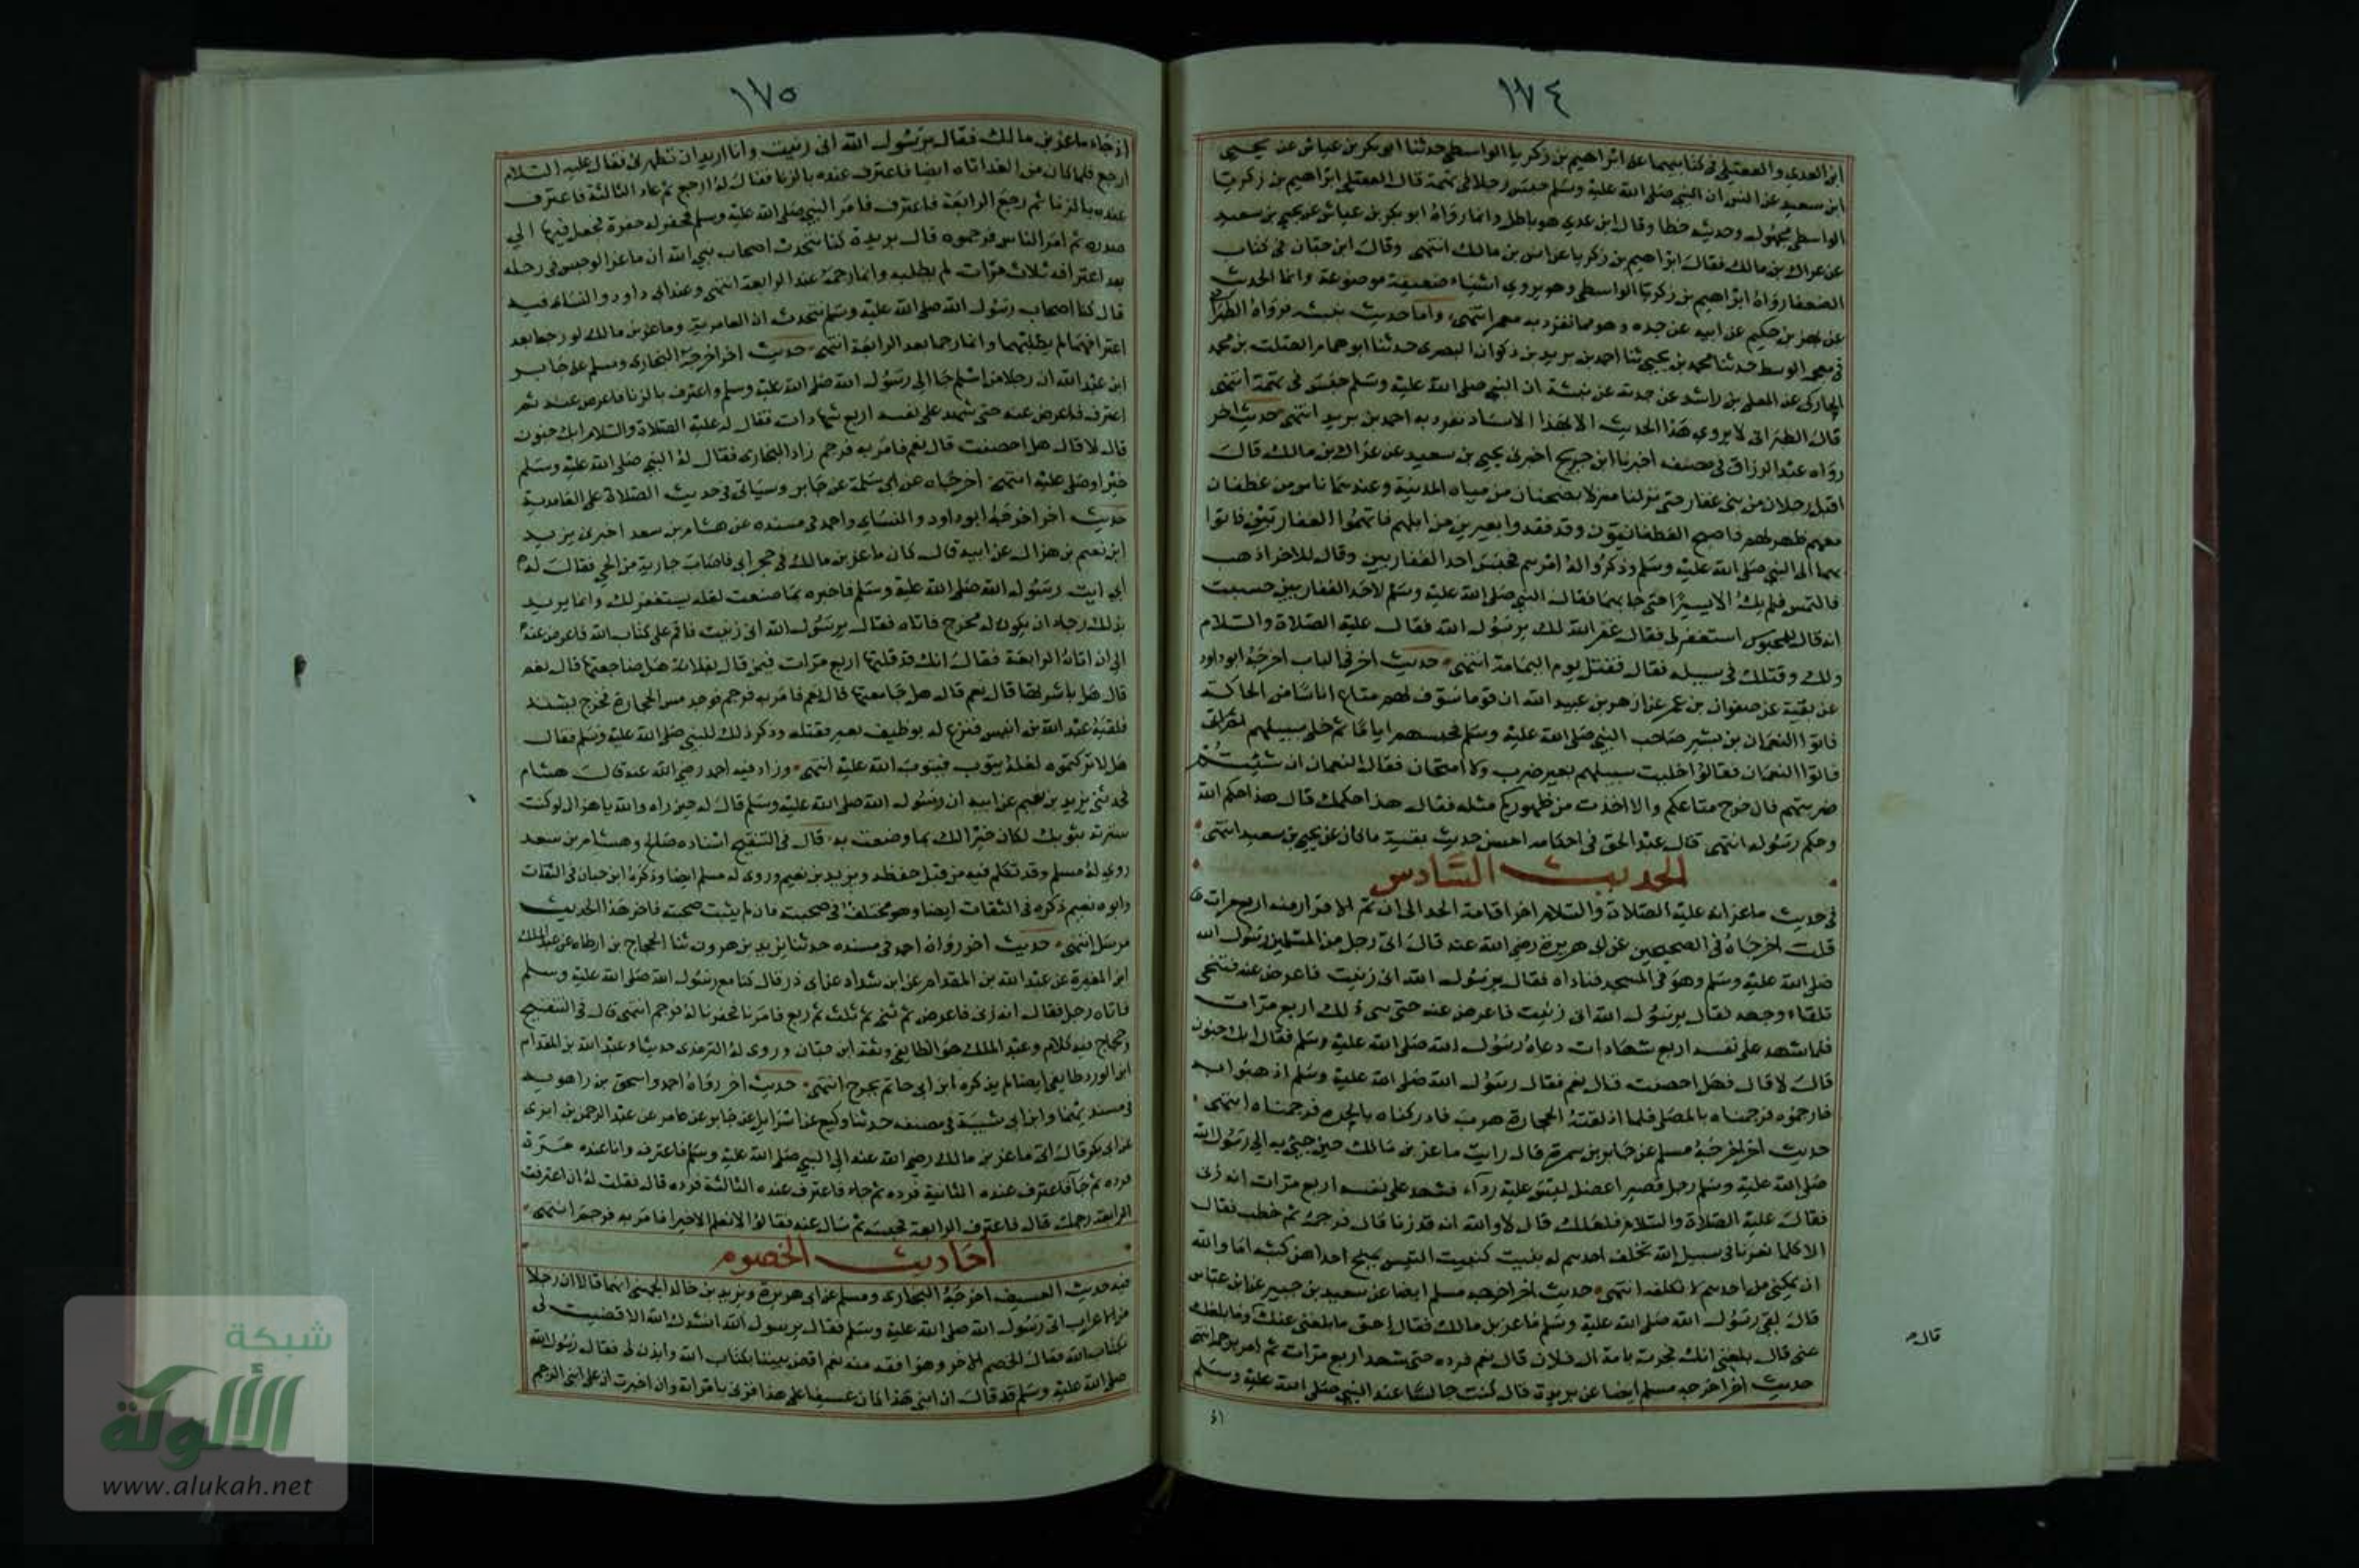 ١٧٤
ابن العدي والعقيلي في كتابيهما عن ابراهيم بن زكريا الواسطي حدثنا ابو بكر بن عياش عن يحيى
ابن سعيد عن انس ان النبي صلى الله عليه وسلم حبس رجلا في تهمة قال العقيلي ابراهيم بن زكريا
الواسطي مجهول وحديثه خطا وقال ابن عدي هو باطل وانما رواه ابو بكر بن عياش عن يحيى بن سعيد
عن عراك بن مالك فقال ابراهيم بن زكريا عن انس بن مالك انتهى وقال ابن حبان في كتاب
الضعفا رواه ابراهيم بن زكريا الواسطي وهو يروي اشياء ضعيفة موضوعة وانما الحديث
عن بهز بن حكيم عن ابيه عن جده وهو مما تفرد به معمر انتهى واما حديث نبيشه فرواه الطبراني
في معجمه الوسط حدثنا محمد بن يحيى ثنا احمد بن يزيد بن ذكوان البصرى حدثنا ابو همام الصلت بن محمد
الخاركى عن المعلى بن راشد عن جدته عن نبيشة ان النبي صلى الله عليه وسلم حبس في تهمة انتهى
قال الطبراني لا يروي هذا الحديث الا بهذا الاسناد تفرد به احمد بن يزيد انتهى حديث اخر
رواه عبد الرزاق في مصنفه اخبرنا ابن جريج اخبرنى يحيى بن سعيد عن عراك بن مالك قال
اقبل رجلان من بنى غفار حتى نزلنا منزلا بضجنان من مياه المدينة وعندهما ناس من غطفان
معهم ظهر لهم فاصبح الغطفانيون وقد فقدوا بعيرين من ابلهم فاتهموا الغفاريين فاتوا
بهما الى النبي صلى الله عليه وسلم وذكروا له امرهم فحبس احد الغفاريين وقال للاخر اذهب
فالتمس فلم يك الا يسيرا حتى جا بهما فقال النبي صلى الله عليه وسلم لاحد الغفاريين حسبت
انه قال للمحبوس استغفر لي فقال غفر الله لك يرسول الله فقال عليه الصلاة والسلام
ولك وقتلك في سبيله فقال فقتل يوم اليمامة انتهى حديث اخر في الباب اخرجه ابو داود
عن بقية عن صفوان بن عمر عن ازهر بن عبيد الله ان قوما سوق لهم متاع اناسا من الحاكة
فاتوا النعمان بن بشير صاحب النبي صلى الله عليه وسلم فحبسهم اياما ثم خلى سبيلهم
فاتوا النعمان فقالوا خليت سبيلهم بغير ضرب ولا امتحان فقال النعمان ان شئتم
ضربتهم فان خرج متاعكم والا اخذت من ظهوركم مثله فقال هذا حكمك قال هذا حكم الله
وحكم رسوله انتهى قال عبد الحق في احكامه احسن حديث بقية ما كان عن يحيى بن سعيد انتهى
الحديث السادس
في حديث ماعز انه عليه الصلاة والسلام اخر اقامة الحد الى ان تم الاقرار منه اربع مرات
قلت اخرجاه في الصحيحين عن ابى هريرة رضي الله عنه قال اتى رجل من المسلمين رسول الله
صلى الله عليه وسلم وهو في المسجد فناداه فقال يرسول الله انى زنيت فاعرض عنه فتنحى
تلقاء وجهه فقال يرسول الله انى زنيت فاعرض عنه حتى ثنى ذلك اربع مرات
فلما شهد على نفسه اربع شهادات دعاه رسول الله صلى الله عليه وسلم فقال ابك جنون
قال لا قال فهل احصنت قال نعم فقال رسول الله صلى الله عليه وسلم اذهبوا به
فارجموه فرجمناه بالمصلى فلما اذلقته الحجارة هرب فادركناه بالحره فرجمناه انتهى
حديث اخر اخرجه مسلم عن جابر بن سمرة قال رايت ماعز بن مالك حين جيئ به الى رسول الله
صلى الله عليه وسلم رجل قصير اعضل ليس عليه رداء فشهد على نفسه اربع مرات انه زنى
فقال عليه الصلاة والسلام فلعلك قال لا والله انه قد زنا قال فرجمه ثم خطب فقال
الا كلما نفرنا في سبيل الله تخلف احدهم له نبيب كنبيب التيس يمنح احداهن كثبه اما والله
ان يمكنى من احدهم لانكلنه انتهى حديث اخر اخرجه مسلم ايضا عن سعيد بن جبير عن ابن عباس
قال لقى رسول الله صلى الله عليه وسلم ماعز بن مالك فقال احق ما بلغنى عنك وما بلغك
عنى قال بلغنى انك فجرت بامة ال فلان قال نعم فرده حتى شهد اربع مرات ثم امر برجمه انتهى
قال
حديث اخر اخرجه مسلم ايضا عن بريدة قال كنت جالسا عند النبي صلى الله عليه وسلم
اذ
١٧٥
اذ جاء ماعز بن مالك فقال يرسول الله انى زنيت وانا اريد ان تطهرنى فقال عليه السلام
ارجع فلما كان من الغد اتاه ايضا فاعترف عنده بالزنا فقال له ارجع ثم عاد الثالثة فاعترف
عنده بالزنا ثم رجع الرابعة فاعترف فامر النبي صلى الله عليه وسلم فحفر له حفرة فجعل فيها الى
صدره ثم امر الناس فرجموه قال بريدة كنا نتحدث اصحاب نبي الله ان ماعزا لو جلس في رحله
بعد اعترافه ثلاث مرات لم يطلبه وانما رجمه عند الرابعة انتهى وعند ابى داود والنساء فيه
قال كنا اصحاب رسول الله صلى الله عليه وسلم نتحدث ان الغامرية وماعز بن مالك لو رجعا بعد
اعترافهما لم يطلبهما وانما رجما بعد الرابعة انتهى حديث اخر اخرجه البخارى ومسلم عن جابر
ابن عبد الله ان رجلا من اسلم جا الى رسول الله صلى الله عليه وسلم واعترف بالزنا فاعرض عنه ثم
اعترف فاعرض عنه حتى شهد على نفسه اربع شهادات فقال له عليه الصلاة والسلام ابك جنون
قال لا قال هل احصنت قال نعم فامر به فرجم زاد البخارى فقال له النبي صلى الله عليه وسلم
خيرا وصلى عليه انتهى اخرجاه عن ابى سلمة عن جابر وسياتى فى حديث الصلاة على الغامدية
حديث اخر اخرجه ابو داود والنساى واحمد في مسنده عن هشام بن سعد اخبرنى يزيد
ابن نعيم بن هزال عن ابيه قال كان ماعز بن مالك في حجر ابى فاصاب جارية من الحى فقال له
ابى ايت رسول الله صلى الله عليه وسلم فاخبره بما صنعت لعله يستغفر لك وانما يريد
بذلك رجاء ان يكون له مخرج فاتاه فقال يرسول الله انى زنيت فاقم على كتاب الله فاعرض عنه
الى ان اتاه الرابعة فقال انك قد قلتها اربع مرات فبمن قال بفلانة هل ضاجعتها قال نعم
قال هل باشرتها قال نعم قال هل جامعتها قال نعم فامر به فرجم فوجد مس الحجارة فخرج يشتد
فلقيه عبد الله بن انيس فنزع له بوظيف بعير فقتله وذكر ذلك للنبي صلى الله عليه وسلم فقال
هلا تركتموه لعله يتوب فيتوب الله عليه انتهى وزاد فيه احمد رضي الله عنه قال هشام
فحدثنى يزيد بن نعيم عن ابيه ان رسول الله صلى الله عليه وسلم قال له حين راه والله يا هزال لو كنت
سترته بثوبك لكان خيرا لك مما وضعت به قال في التنقيح اسناده صالح وهشام بن سعد
روي له مسلم وقد تكلم فيه من قبل حفظه ويزيد بن نعيم وروى له مسلم ايضا وذكره ابن حبان فى الثقات
وابوه نعيم ذكره في الثقات ايضا وهو مختلف في صحبته فان لم يثبت صحبته فاخر هذا الحديث
مرسل انتهى حديث اخر رواه احمد في مسنده حدثنا يزيد بن هرون ثنا الحجاج بن ارطاه عن عبد الملك
ابن المغيرة عن عبد الله بن المقدام عن ابن شداد عن ابى ذر قال كنا مع رسول الله صلى الله عليه وسلم
فاتاه رجل فقال انه زنى فاعرض ثم ثنى ثم ثلث ثم ربع فامرنا فحفرنا له فرجم انتهى قال في التنقيح
وحجاج فيه كلام وعبد الملك هو الطايفى وثقه ابن حبان وروى له الترمذى حديثا وعبد الله بن المقدام
ابن الورد طايفى ايضا لم يذكره ابن ابى حاتم بجرح انتهى حديث اخر رواه احمد واسحق بن راهويه
فى مسنديهما وابن ابى شيبة في مصنفه حدثنا وكيع عن اسرايل عن جابر عن عامر عن عبد الرحمن بن ابزى
عن ابى بكر قال اتى ماعز بن مالك رضى الله عنه الى النبى صلى الله عليه وسلم فاعترف وانا عنده مرة
فرده ثم جا فاعترف عنده الثانية فرده ثم جاء فاعترف عنده الثالثة فرده قال فقلت له ان اعترفت
الرابعة رجمك قال فاعترف الرابعة فحبسه ثم سال عنه فقالوا لا نعلم الا خيرا فامر به فرجم انتهى
احاديث الخصوم
فيه حديث العسيف اخرجه البخارى ومسلم عن ابى هريرة وزيد بن خالد الجهنى انهما قالا ان رجلا
من الاعراب اتى رسول الله صلى الله عليه وسلم فقال يرسول الله انشدك الله الا قضيت لى
بكتاب الله فقال الخصم الاخر وهو افقه منه نعم اقض بيننا بكتاب الله وايذن لى فقال رسول الله
صلى الله عليه وسلم قل قال ان ابنى هذا كان عسيفا على هذا فزنى بامراته وان اخبرت ان على ابنى الرجم
شبكة
الألوكة
www.alukah.net